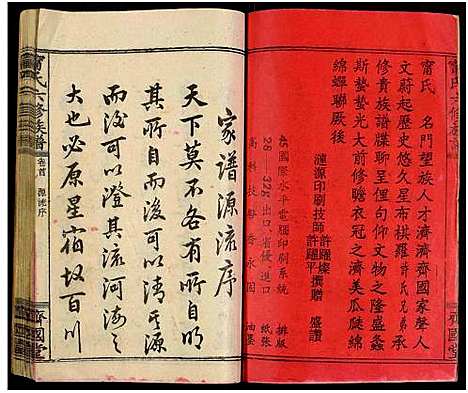 甯氏六修族譜
甯氏 名門望族人才濟濟齊國家聲人
文蔚起歷史悠久星布棋羅許氏兄弟承
修貴族譜牒聊呈俚句仰文物之隆盛螽
斯蟄蟄光大前修瞻衣冠之濟美瓜瓞綿
綿蟬聯厥後
漣源印刷技師許躍燦許躍平撰贈 盛讚
國際水平電腦印刷系統 排版
28—32g出口、省優、進口 紙張
高科技 永固 油墨
齊國堂
家譜源流序
天下莫不各有所自明
其所自而後可以清其源
而後可以澄其流河海之
大也必原星宿坂百川
甯氏六修族譜
卷首
源流序
齊國堂